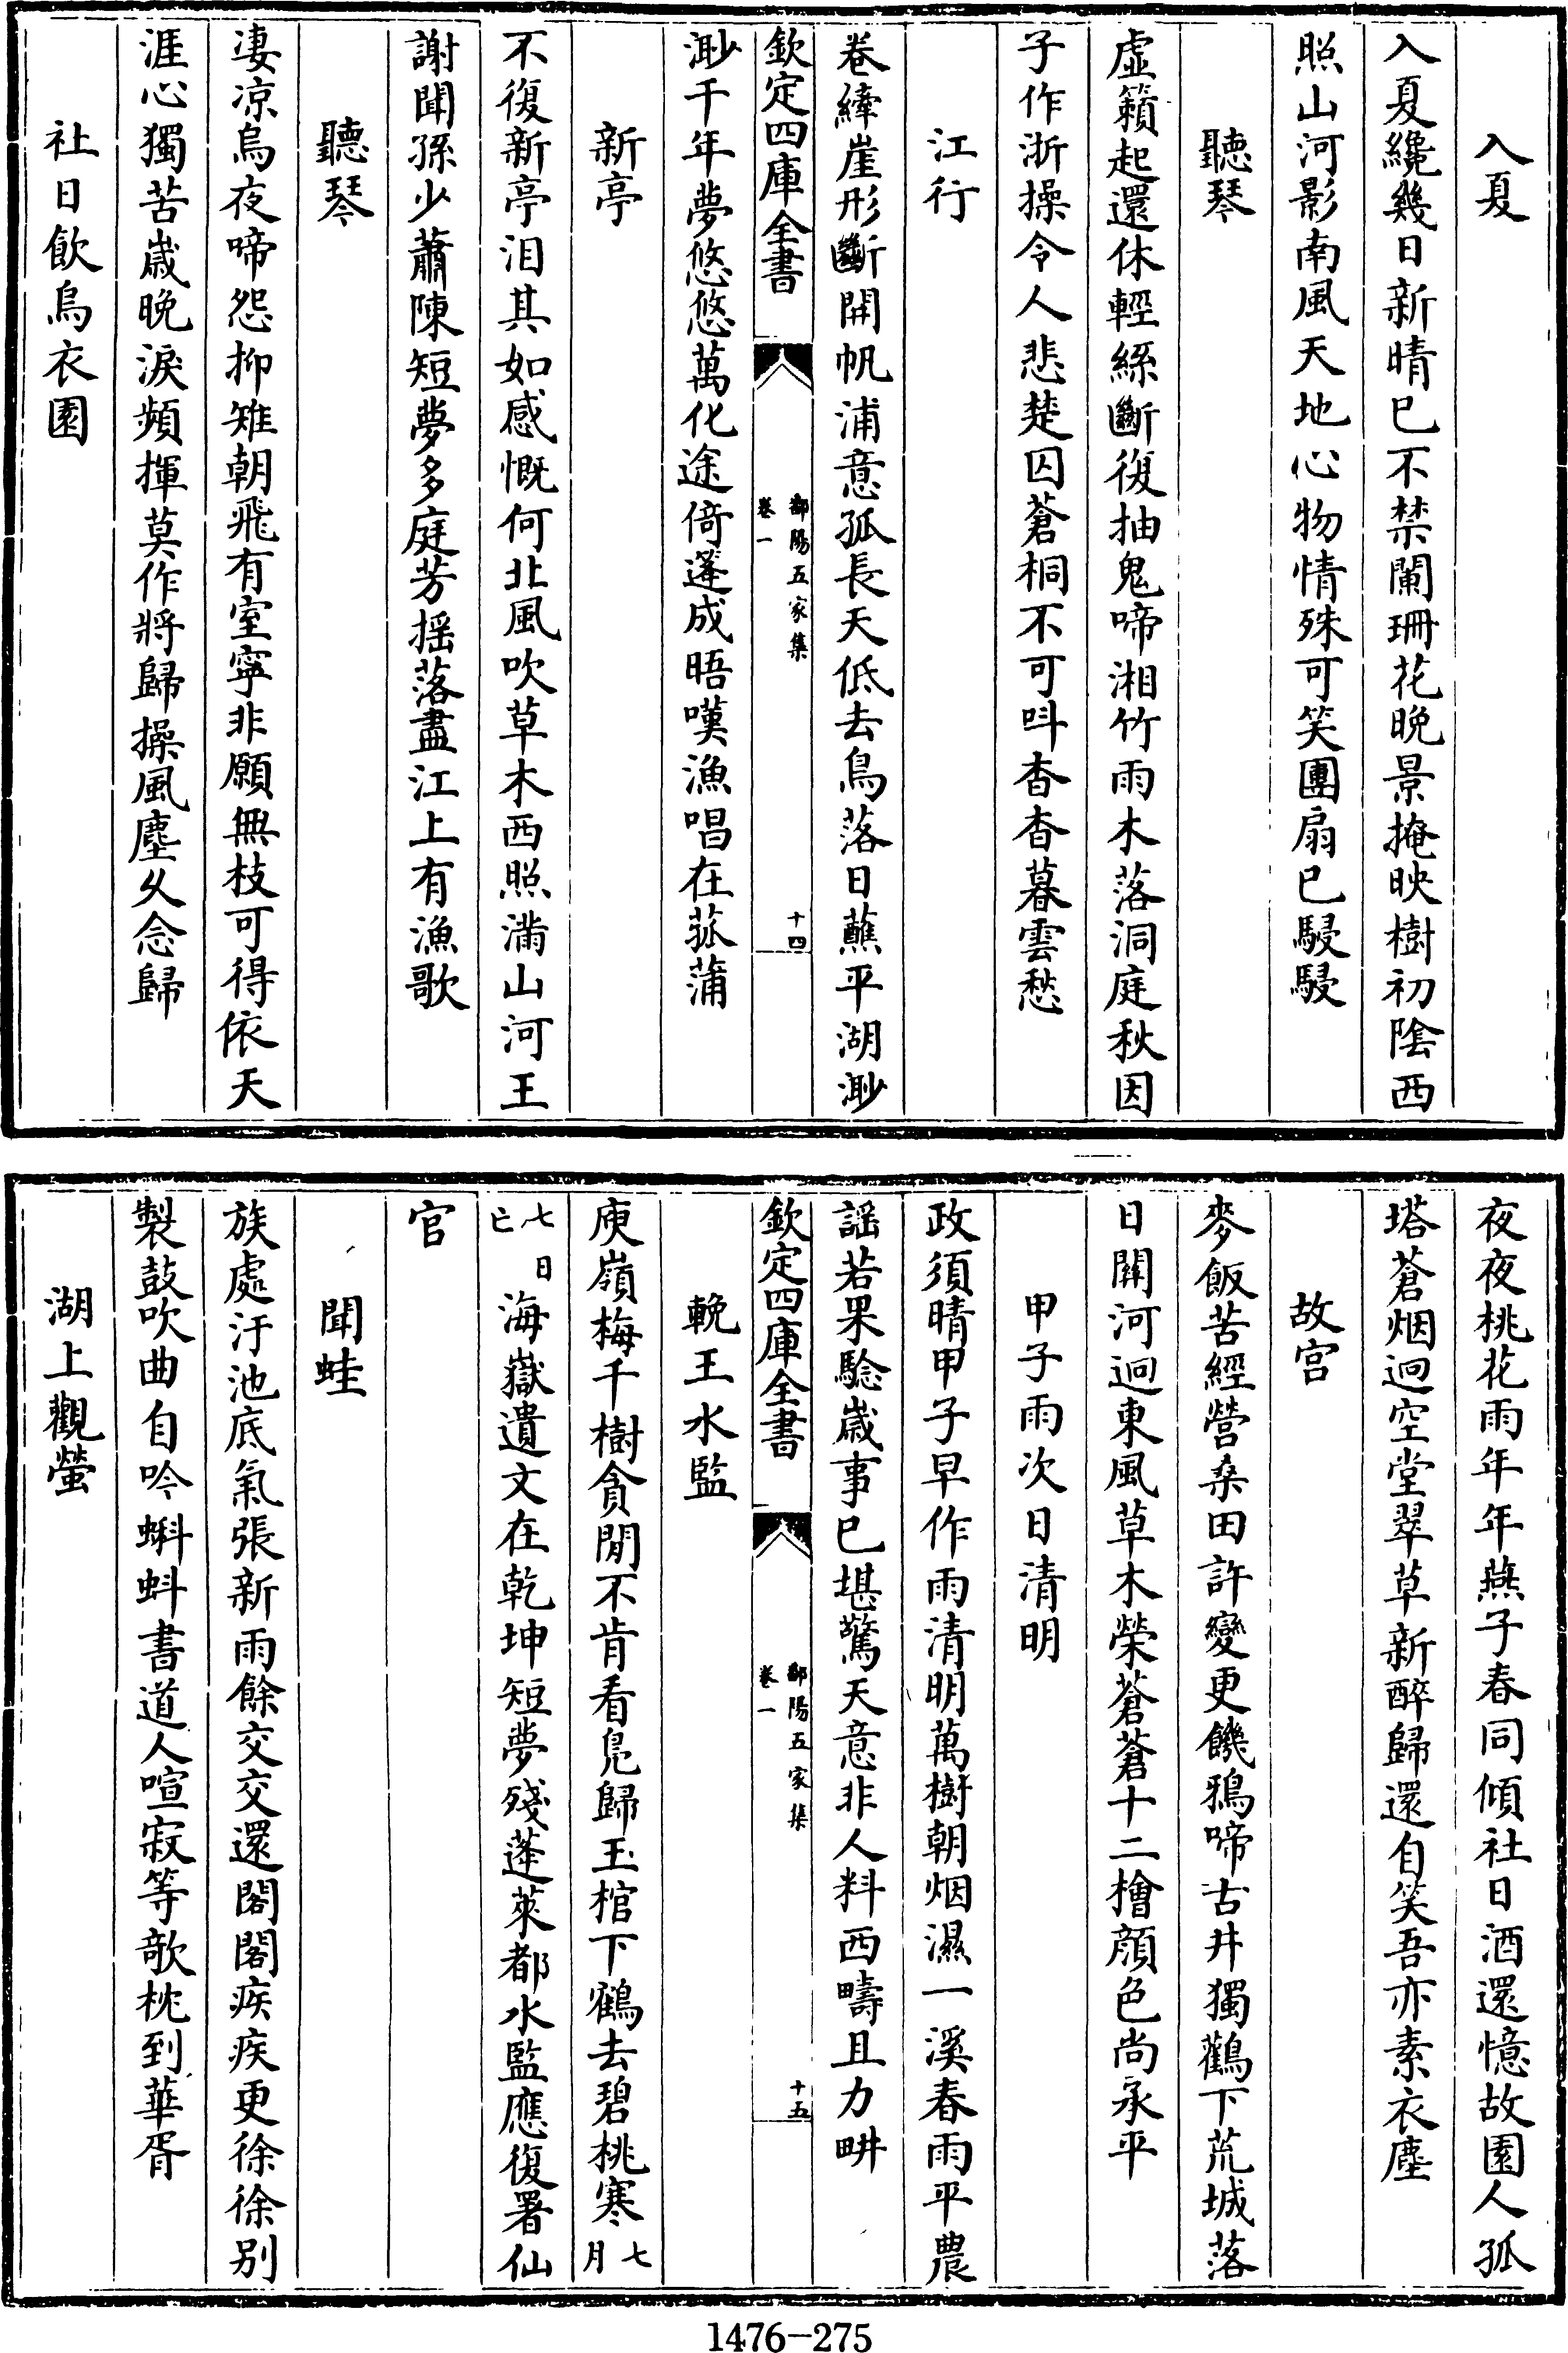 入夏
入夏纔幾日新晴已不禁闌珊花晚景掩映樹初陰西
照山河影南風天地心物情殊可笑團扇已駸駸
聽琴
虛籟起還休輕絲斷復抽鬼啼湘竹雨木落洞庭秋因
子作浙操令人悲楚囚蒼桐不可呌杳杳暮雲愁
江行
卷繂崖形斷開帆浦意孤長天低去鳥落日蘸平湖渺
欽定四庫全書
鄱陽五家集
卷一
十四
渺千年夢悠悠萬化途倚蓬成晤嘆漁唱在菰蒲
新亭
不復新亭泪其如感慨何北風吹草木西照滿山河王
謝聞孫少蕭陳短夢多庭芳揺落盡江上有漁歌
聽琴
凄凉烏夜啼怨抑雉朝飛有室寧非願無枝可得依天
涯心獨苦歲晩淚頻揮莫作將歸操風塵乆念歸
社日飲烏衣園
夜夜桃花雨年年燕子春同傾社日酒還憶故園人孤
塔蒼烟迥空堂翠草新醉歸還自笑吾亦素衣塵
故宫
麥飯苦經營桑田許變更饑鴉啼古井獨鸛下荒城落
日關河迥東風草木榮蒼蒼十二檜顔色尚承平
甲子雨次日清明
政須晴甲子早作雨清明萬樹朝烟濕一溪春雨平農
謡若果驗歲事已堪驚天意非人料西疇且力畊
欽定四庫全書
鄱陽五家集
卷一
十五
輓王水監
庾嶺梅千樹貪閒不肯看鳬歸玉棺下鶴去碧桃寒七月
七日亡海嶽遺文在乾坤短夢殘蓬萊都水監應復署仙
官
聞蛙
族處汙池底氣張新雨餘交交還閣閣疾疾更徐徐别
製鼓吹曲自吟蝌蚪書道人喧寂等欹枕到華胥
湖上觀螢
1476-275